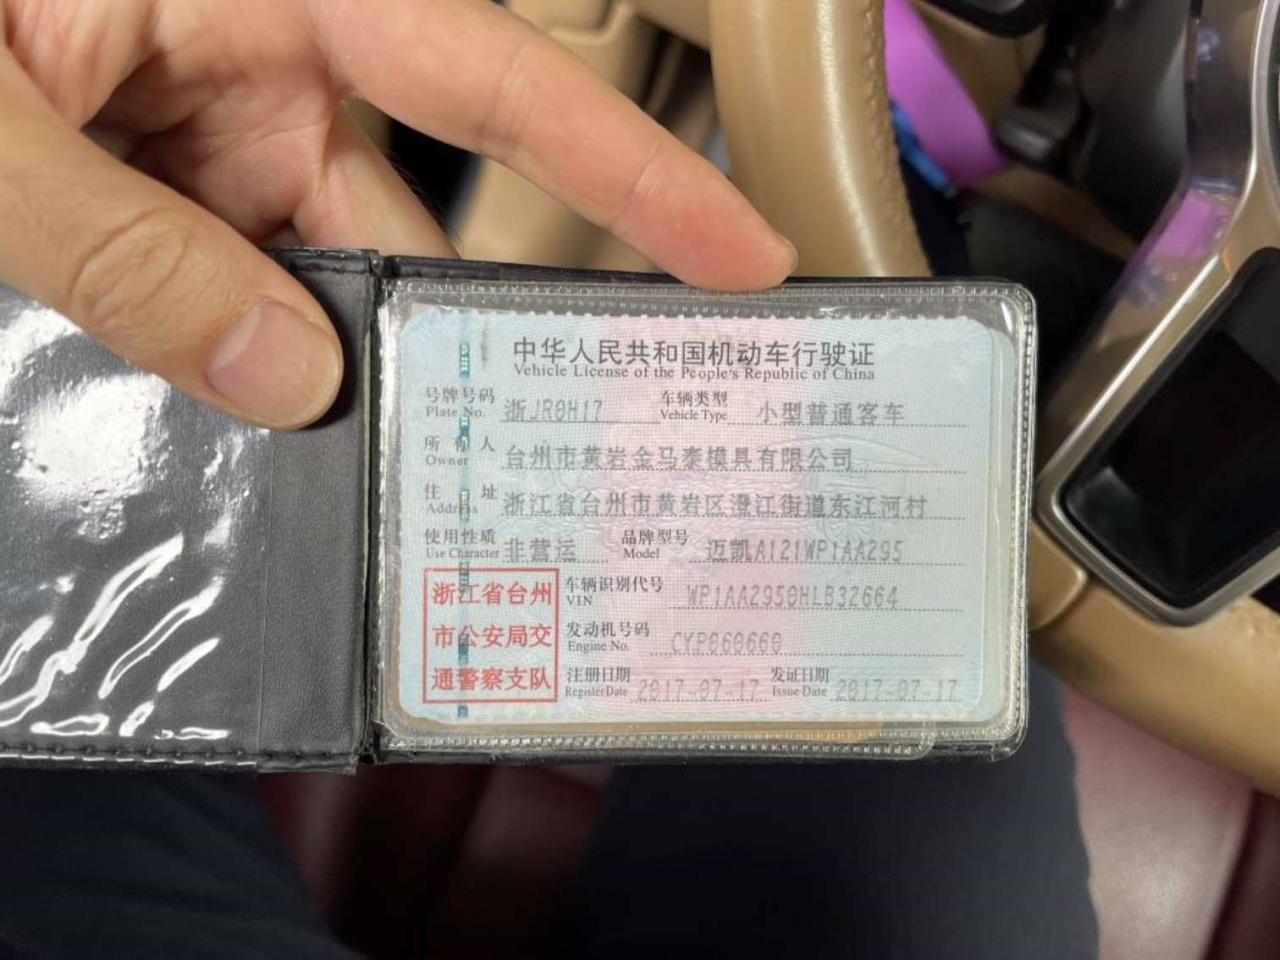 中华人民共和国机动车行驶证
Vehicle License of the People's Republic of China
号牌号码 浙JR0H17 车辆类型 小型普通客车
Plate No. Vehicle Type
所有人 台州市黄岩金马泰模具有限公司
Owner
住址 浙江省台州市黄岩区澄江街道东江河村
Address
使用性质 非营运 品牌型号 迈凯A121WP1AA295
Use Character Model
浙江省台州
市公安局交
通警察支队
车辆识别代号 WP1AA2950HLB32664
VIN
发动机号码 CYP060660
Engine No.
注册日期 2017-07-17 发证日期 2017-07-17
Register Date Issue Date